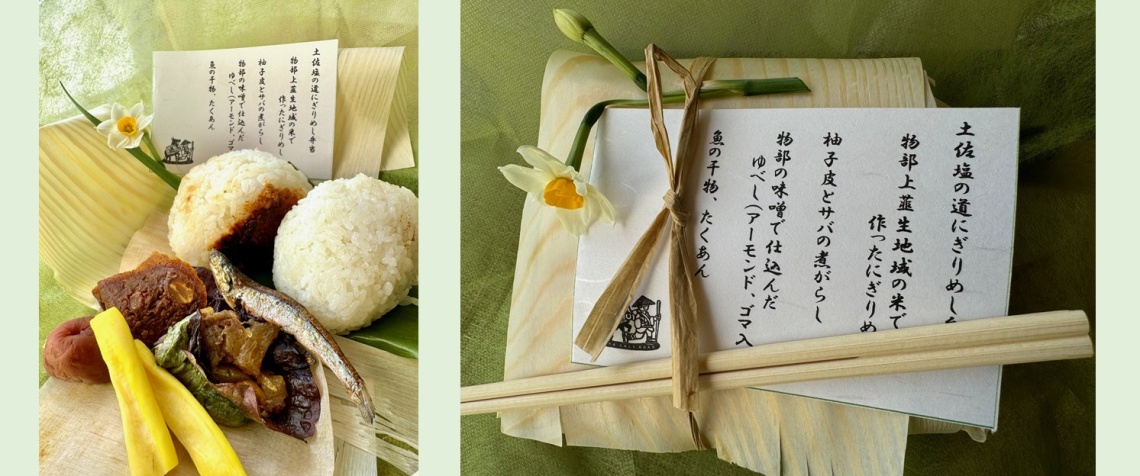 土佐塩の道にぎりめし弁当
物部上韮生地域の米で
作ったにぎりめし
柚子皮とサバの煮がらし
物部の味噌で仕込んだ
ゆべし(アーモンド、ゴマ
魚の干物、たくあん
土佐塩の道にぎりめし
物部上韮生地域の米で
作ったにぎりめ
柚子皮とサバの煮がらし
物部の味噌で仕込んだ
ゆべし(アーモンド、ゴマ入
魚の干物、たくあん